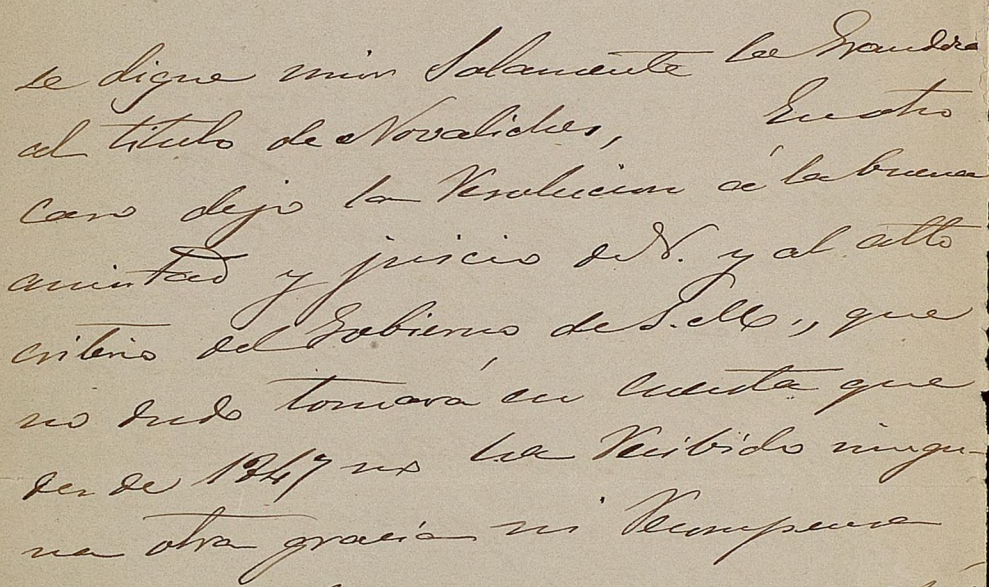 se digne unir solamente la Grandeza
al titulo de Novaliches, En otro
caso dejo la resolucion á la buena
amistad y juicio de V. y al alto
criterio del Gobierno de S. M., que
no dudo tomará en cuenta que
desde 1847 no ha recibido ningu-
na otra gracia ni recompensa